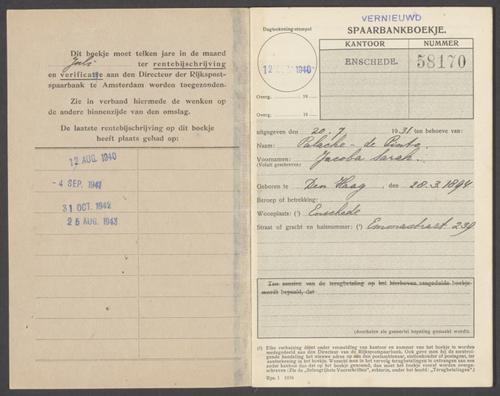 Dit boekje moet telken jare in de maand
Juli ter rentebijschrijving
en verificatie aan den Directeur der Rijkspost-
spaarbank te Amsterdam worden toegezonden.
Zie in verband hiermede de wenken op
de andere binnenzijde van den omslag.
De laatste rentebijschrijving op dit boekje
heeft plaats gehad op:
12 AUG. 1940
- 4 SEP. 1941
31 OCT. 1942
25 AUG. 1943
VERNIEUWD
Dagteekening-stempel
SPAARBANKBOEKJE.
KANTOOR
NUMMER
ENSCHEDE.
58170
12 1940
Overg. 19
Overg. 19
uitgegeven den 20.7 1931 ten behoeve van:
Naam: Palache - de Pinto
Voornamen: Jacoba Sarah.
(Voluit geschreven)
Geboren te Den Haag, den 28.3.1894
Beroep of betrekking:
Woonplaats: (¹) Enschede
Straat of gracht en huisnummer: (¹) Emmastraat 239
Ten aanzien van de terugbetaling op het hierboven aangeduide boekje
wordt bepaald, dat
(Doorhalen als geenerlei bepaling gemaakt wordt).
(¹) Elke verhuizing dient onder vermelding van kantoor en nummer van het boekje te worden
medegedeeld aan den Directeur der Rijkspostspaarbank.